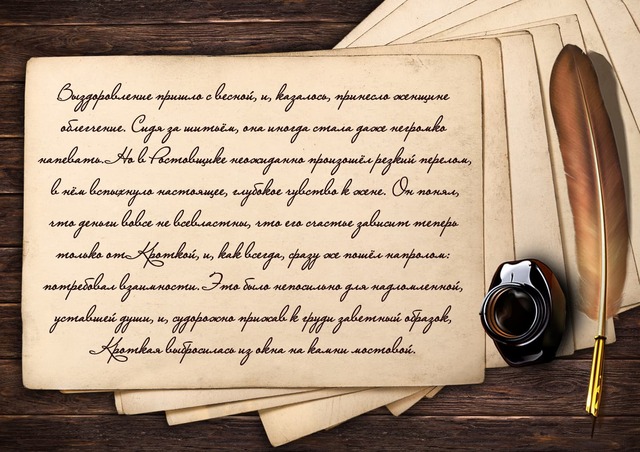 Выздоровление пришло с весной, и, казалось, принесло женщине
облегчение. Сидя за шитьём, она иногда стала даже негромко
напевать. Но в Ростовщике неожиданно произошёл резкий перелом,
в нём вспыхнуло настоящее, глубокое чувство к жене. Он понял,
что деньги вовсе не всевластны, что его счастье зависит теперь
только от Кроткой, и, как всегда, сразу же пошёл напролом:
потребовал взаимности. Это было непосильно для надломленной,
уставшей души, и, судорожно прижав к груди заветный образок,
Кроткая выбросилась из окна на камни мостовой.